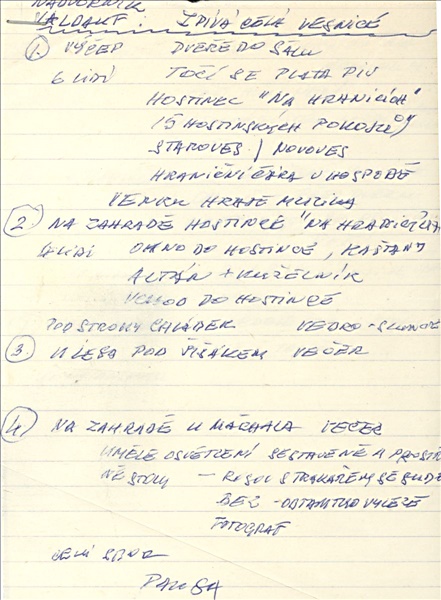 NÁDVORNÍK
VALDAUF : ZPÍVÁ CELÁ VESNICE
1. VÝČEP DVEŘE DO SÁLU
6 LIDÍ TOČÍ SE PLATA PIV
HOSTINEC "NA HRANICÍCH"
15 HOSTINSKÝCH POKOJŮ
STAROVES / NOVOVES
HRANIČNÍ ČÁRA V HOSPODĚ
VENKU HRAJE MUZIKA
2. NA ZAHRADĚ HOSTINCE "NA HRANICÍCH
4 LIDI OKNO DO HOSTINCE, KAŠTANY
ALTÁN + KUŽELNÍK
VCHOD DO HOSTINCE
POD STROMY CHLÁDEK VEDRO - SLUNCE
3. U LESA POD VEČER
4. NA ZAHRADĚ U MÁCHALA VEČER
UMĚLÉ OSVĚTLENÍ SESTAVENÉ A PROSTŘ
NÉ STOLY —
BEZ -
FOTOGRAF
CELÝ SBOR
PAUSA